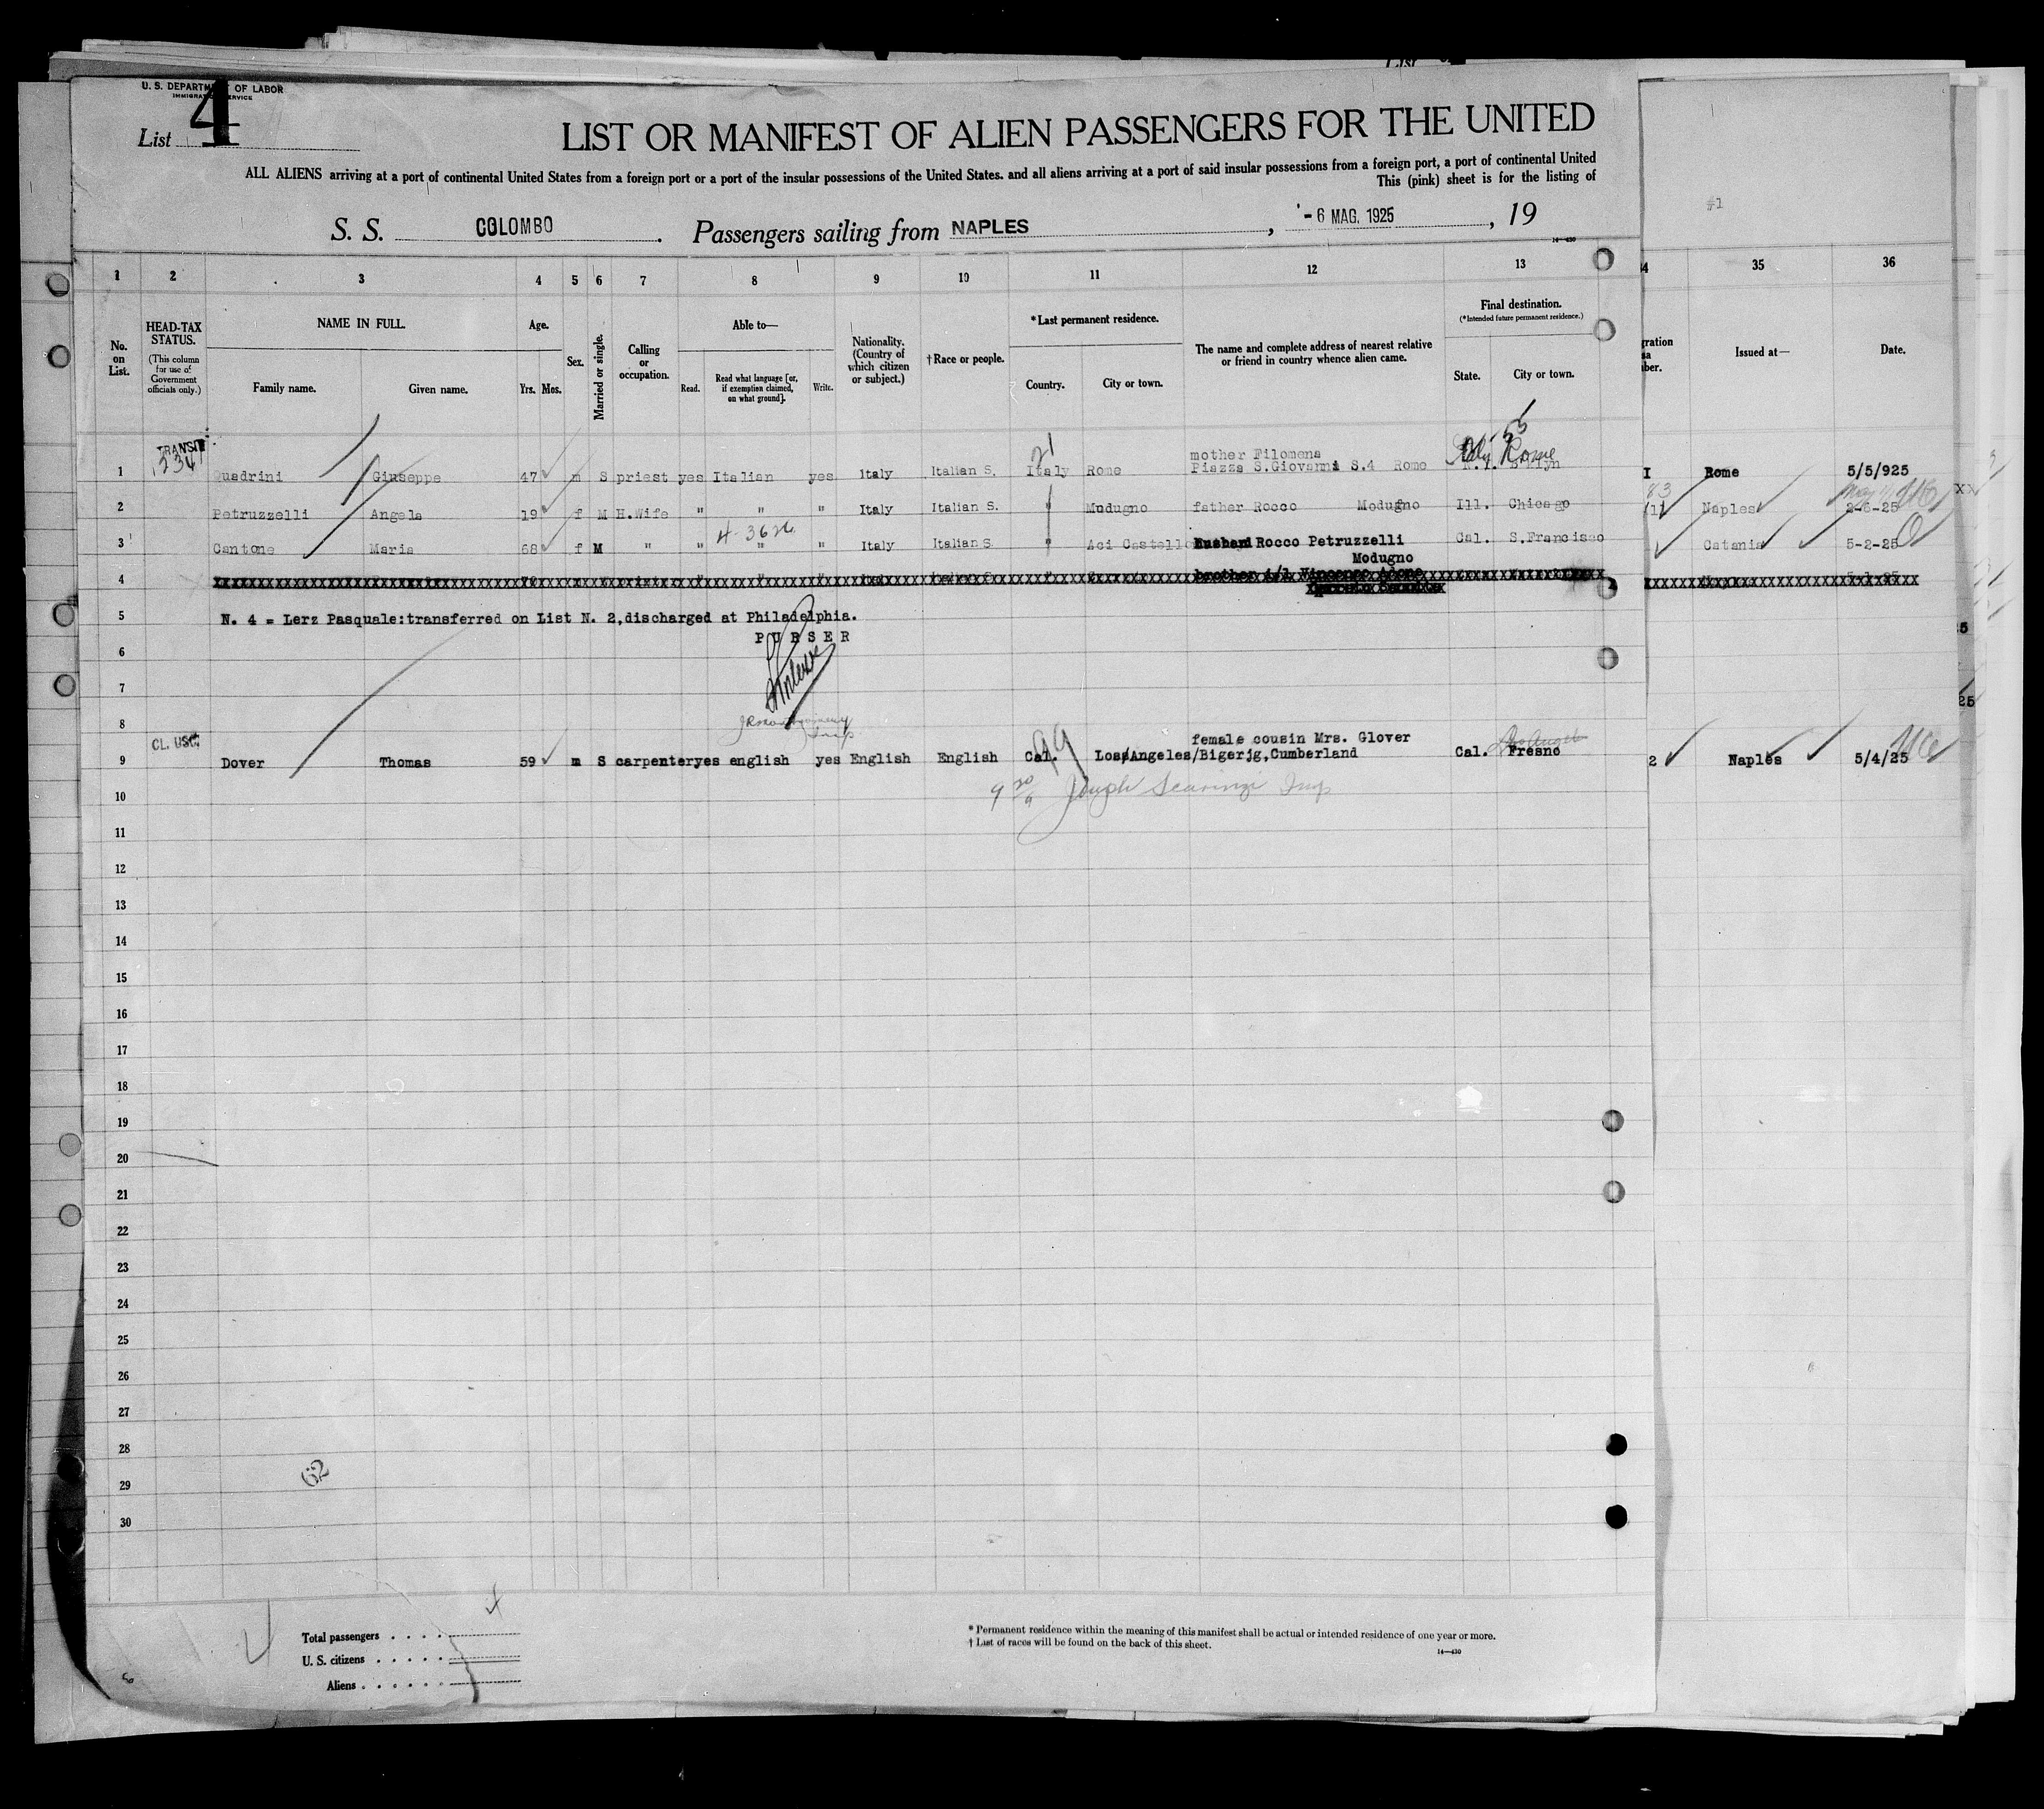 U. S. DEPARTMENT OF LABOR
IMMIGRATION SERVICE
List 4
LIST OR MANIFEST OF ALIEN PASSENGERS FOR THE UNITED
ALL ALIENS arriving at a port of continental United States from a foreign port or a port of the insular possessions of the United States, and all aliens arriving at a port of said insular possessions from a foreign port, a port of continental United
This (pink) sheet is for the listing of
S. S. COLOMBO. Passengers sailing from NAPLES, - 6 MAG. 1925, 19
#1
14—430
1 2 3 4 5 6 7 8 9 10 11 12 13 35 36
No. on List.
HEAD-TAX STATUS.
(This column for use of Government officials only.)
NAME IN FULL.
Family name. Given name.
Age.
Yrs. Mos.
Sex.
Married or single.
Calling or occupation.
Able to—
Read. Read what language [or, if exemption claimed, on what ground]. Write.
Nationality. (Country of which citizen or subject.)
† Race or people.
*Last permanent residence.
Country. City or town.
The name and complete address of nearest relative or friend in country whence alien came.
Final destination.
(*Intended future permanent residence.)
State. City or town.
Issued at—
Date.
TRANSIT
mother Filomena
1 Quadrini Giuseppe 47 m S priest yes Italian yes Italy Italian S. Italy Rome Piazza S.Giovanni S.4 Rome Italy Rome Rome 5/5/925
2 Petruzzelli Angela 19 f M H.Wife " " " Italy Italian S. " Mudugno father Rocco Modugno Ill. Chicago Naples 2-6-25
4-3626
3 Cantone Maria 68 f M " " " " Italy Italian S " Aci Castello Rocco Petruzzelli Cal. S.Francisco Catania 5-2-25
Modugno
4 brother i/l Vincenzo
5 N. 4 = Lerz Pasquale:transferred on List N. 2,discharged at Philadelphia.
PURSER
6
7
8
CL. USC.
female cousin Mrs. Glover
9 Dover Thomas 59 m S carpenter yes english yes English English Cal. Los Angeles/Bigerjg,Cumberland Cal. Fresno 2 Naples 5/4/25
Los Angeles
99
Joseph Scaringi Insp
10
11
12
13
14
15
16
17
18
19
20
21
22
23
24
25
26
27
28
29
30
62
Total passengers
U. S. citizens
Aliens
* Permanent residence within the meaning of this manifest shall be actual or intended residence of one year or more.
† List of races will be found on the back of this sheet.
14—430